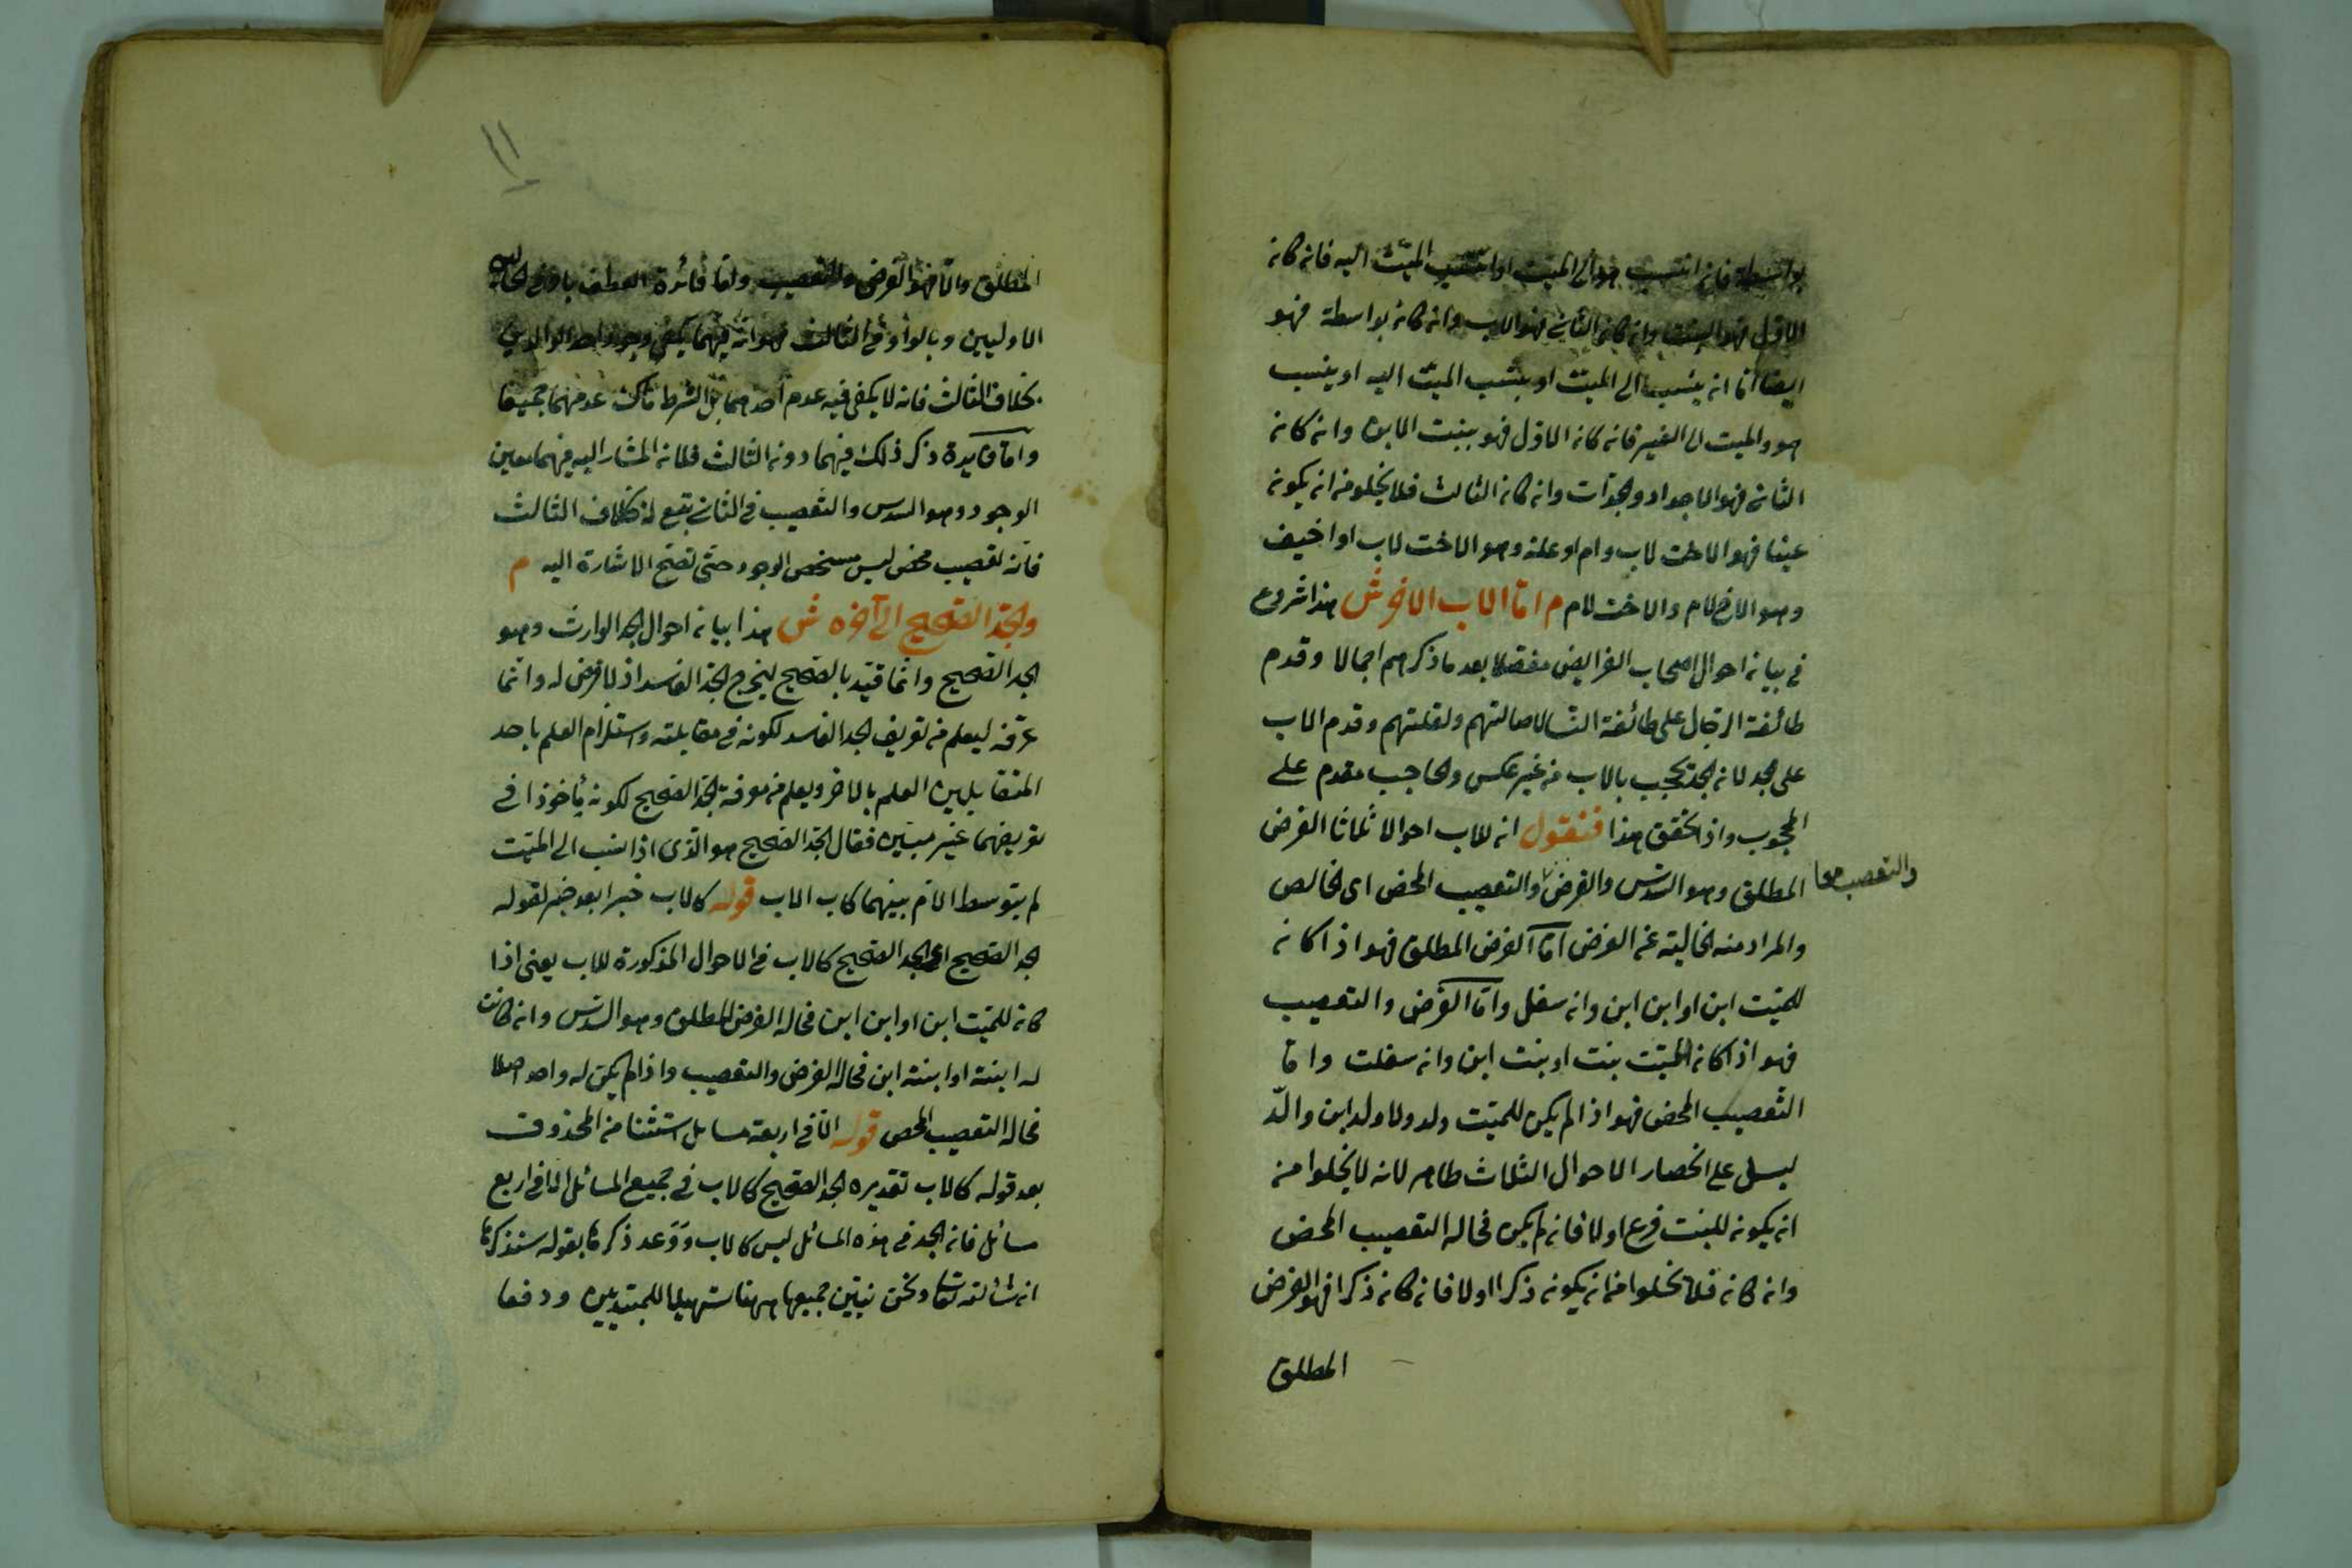 بواسطة فان انتسب هو الى الميت او انتسب الميت اليه فان كان
الاول فهو البنت وان كان الثاني فهو الاب وان كان بواسطة فهو
ايضا اما ان ينسب الى الميت او ينتسب الميت اليه او ينسب
هو والميت الى الغير فان كان الاول فهو بنت الابن وان كان
الثاني فهو الاجداد والجدات وان كان الثالث فلا يخلو من ان يكون
عينا فهو الاخت لاب وام او علة وهو الاخت لاب او اخيف
وهو الاخ لام والاخت لام م اما الاب الاخره ش هذا شروع
في بيان احوال اصحاب الفرايض مفصلا بعد ما ذكرهم اجمالا وقدم
طائفة الرجال على طائفة النسا لاصالتهم ولقلتهم وقدم الاب
على الجد لان الجد يحجب بالاب من غير عكس والحاجب مقدم على
المحجوب واذا تحقق هذا فنقول ان للاب احوالا ثلاثا الفرض
المطلق وهو السدس والفرض والتعصيب المحض اى الخالص
والتعصيب معا
والمراد منه الخالية عن الفرض اما الفرض المطلق فهو اذا كان
للميت ابن او ابن ابن وان سفل واما الفرض والتعصيب
فهو اذا كان للميت بنت او بنت ابن وان سفلت واما
التعصيب المحض فهو اذا لم يكن للميت ولد ولا ولد ابن والد
ليل على انحصار الاحوال الثلاث ظاهر لانه لا يخلوا من
ان يكون للميت فرع اولا فان لم يكن فحاله التعصيب المحض
وان كان فلا يخلوا من ان يكون ذكرا اولا فان كان ذكرا فهو الفرض
المطلق
١١
المطلق والا فهو الفرض والتعصيب واما فائدة العطف باو في الحالة
الاوليين وبالواو في الثالث فهو انه فيهما يكفي وجود احد الوالدين
بخلاف الثالث فانه لا يكفى فيه عدم احدهما بل الشرط هناك عدمهما جميعا
واما فايدة ذكر ذلك فيهما دون الثالث فلان المشار اليه فيهما معين
الوجود وهو السدس والتعصيب في الثاني تبع له بخلاف الثالث
فانه تعصيب محض ليس مشخص الوجود حتى تصح الاشارة اليه م
والجد الصحيح الى آخره ش هذا بيان احوال الجد الوارث وهو
الجد الصحيح وانما قيد بالصحيح ليخرج الجد الفاسد اذ لا فرض له وانما
عرفه ليعلم من تعريف الجد الفاسد لكونه في مقابلته واستلزام العلم باحد
المتقابلين العلم بالاخر ويعلم من معرفة الجد الصحيح لكونه ماخوذا في
تعريفهما غير مبين فقال الجد الصحيح هو الذى اذا نسب الى الميت
لم يتوسط الام بينهما كاب الاب قوله كالاب خبر بعد خبر لقوله
الجد الصحيح اى الجد الصحيح كالاب في الاحوال المذكورة للاب يعنى اذا
كان للميت ابن او ابن ابن فحاله الفرض المطلق وهو السدس وان كانت
له ابنة او ابنة ابن فحاله الفرض والتعصيب واذا لم يكن له واحد اصلا
فحاله التعصيب المحض قوله الا في اربعة مسايل استثنا من المحذوف
بعد قوله كالاب تقديره الجد الصحيح كالاب في جميع المسائل الا في اربع
مسائل فان الجد في هذه المسائل ليس كالاب ووعد ذكرها بقوله سنذكرها
ان شا الله تعالى ونحن نبين جميعها ههنا تسهيلا للمبتديين ودفعا